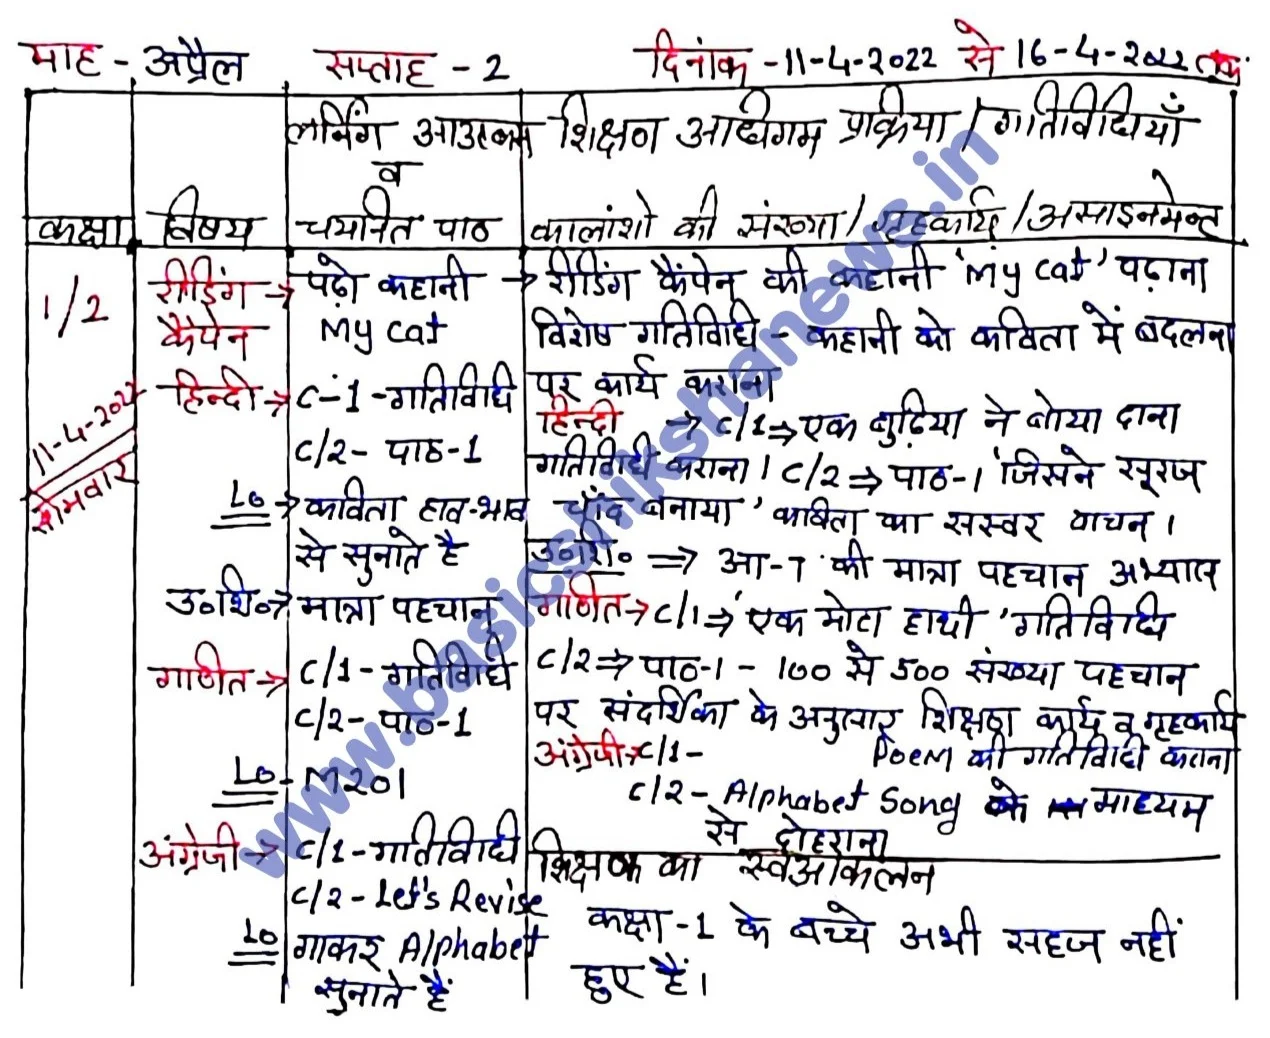 माह - अप्रैल सप्ताह - 2 दिनांक - 11-4-2022 से 16-4-2022 तक
लर्निंग आउटकम शिक्षण अधिगम प्रक्रिया / गतिविधियाँ
व
कक्षा विषय चयनित पाठ कालांशो की संख्या / गृहकार्य / असाइनमेन्ट
1/2
11-4-2022
सोमवार
रीडिंग → पढ़ो कहानी
कैंपेन My cat
हिन्दी → C-1 - गतिविधि
C/2 - पाठ-1
LO → कविता हाव-भाव
से सुनाते है
उ०शि० → मात्रा पहचान
गणित → C/1 - गतिविधि
C/2 - पाठ-1
LO - M201
अंग्रेजी → C/1 - गतिविधि
C/2 - Let's Revise
LO गाकर Alphabet
सुनाते हैं
→ रीडिंग कैंपेन की कहानी 'My cat' पढ़ाना
विशेष गतिविधि - कहानी को कविता में बदलना
पर कार्य कराना
हिन्दी → C/1 ⇒ एक बुढ़िया ने बोया दाना
गतिविधि कराना। C/2 ⇒ पाठ-1 'जिसने सूरज
चाँद बनाया' कविता का सस्वर वाचन।
उ०शि० ⇒ आ-ा की मात्रा पहचान अभ्यास
गणित → C/1 ⇒ 'एक मोटा हाथी' गतिविधि
C/2 ⇒ पाठ-1 - 100 से 500 संख्या पहचान
पर संदर्शिका के अनुसार शिक्षण कार्य व गृहकार्य
अंग्रेजी → C/1 - Poem की गतिविधि कराना
C/2 - Alphabet Song के माध्यम
से दोहराना
शिक्षक का स्वआंकलन
कक्षा-1 के बच्चे अभी सहज नहीं
हुए हैं।
www.basicshikshanews.in